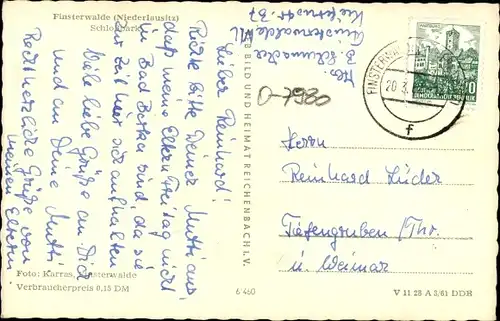 Finsterwalde (Niederlausitz)
Schloßpark
Lieber Reinhard!
Richte bitte Deiner Mutti aus,
daß meine Eltern Freitag nicht
in Bad Berka sind, da sie
zur Zeit hier sich aufhalten.
Viele liebe Grüße an Dich
und an Deine Mutti
Recht herzliche Grüße von
meinen Eltern
Abs.
B. Schumacher
Finsterwalde NL
37
O-7980
BILD UND HEIMAT REICHENBACH I. V.
FINSTERWALDE
20.3.
f
WARTBURG
10
DEUTSCHE
DEMOKRATISCHE REPUBLIK
Herrn
Reinhard Lüder
Tiefengruben/Thr.
ü. Weimar
Foto: Karras, Finsterwalde
Verbraucherpreis 0,15 DM
6/460
V 11 28 A 3/61 DDR